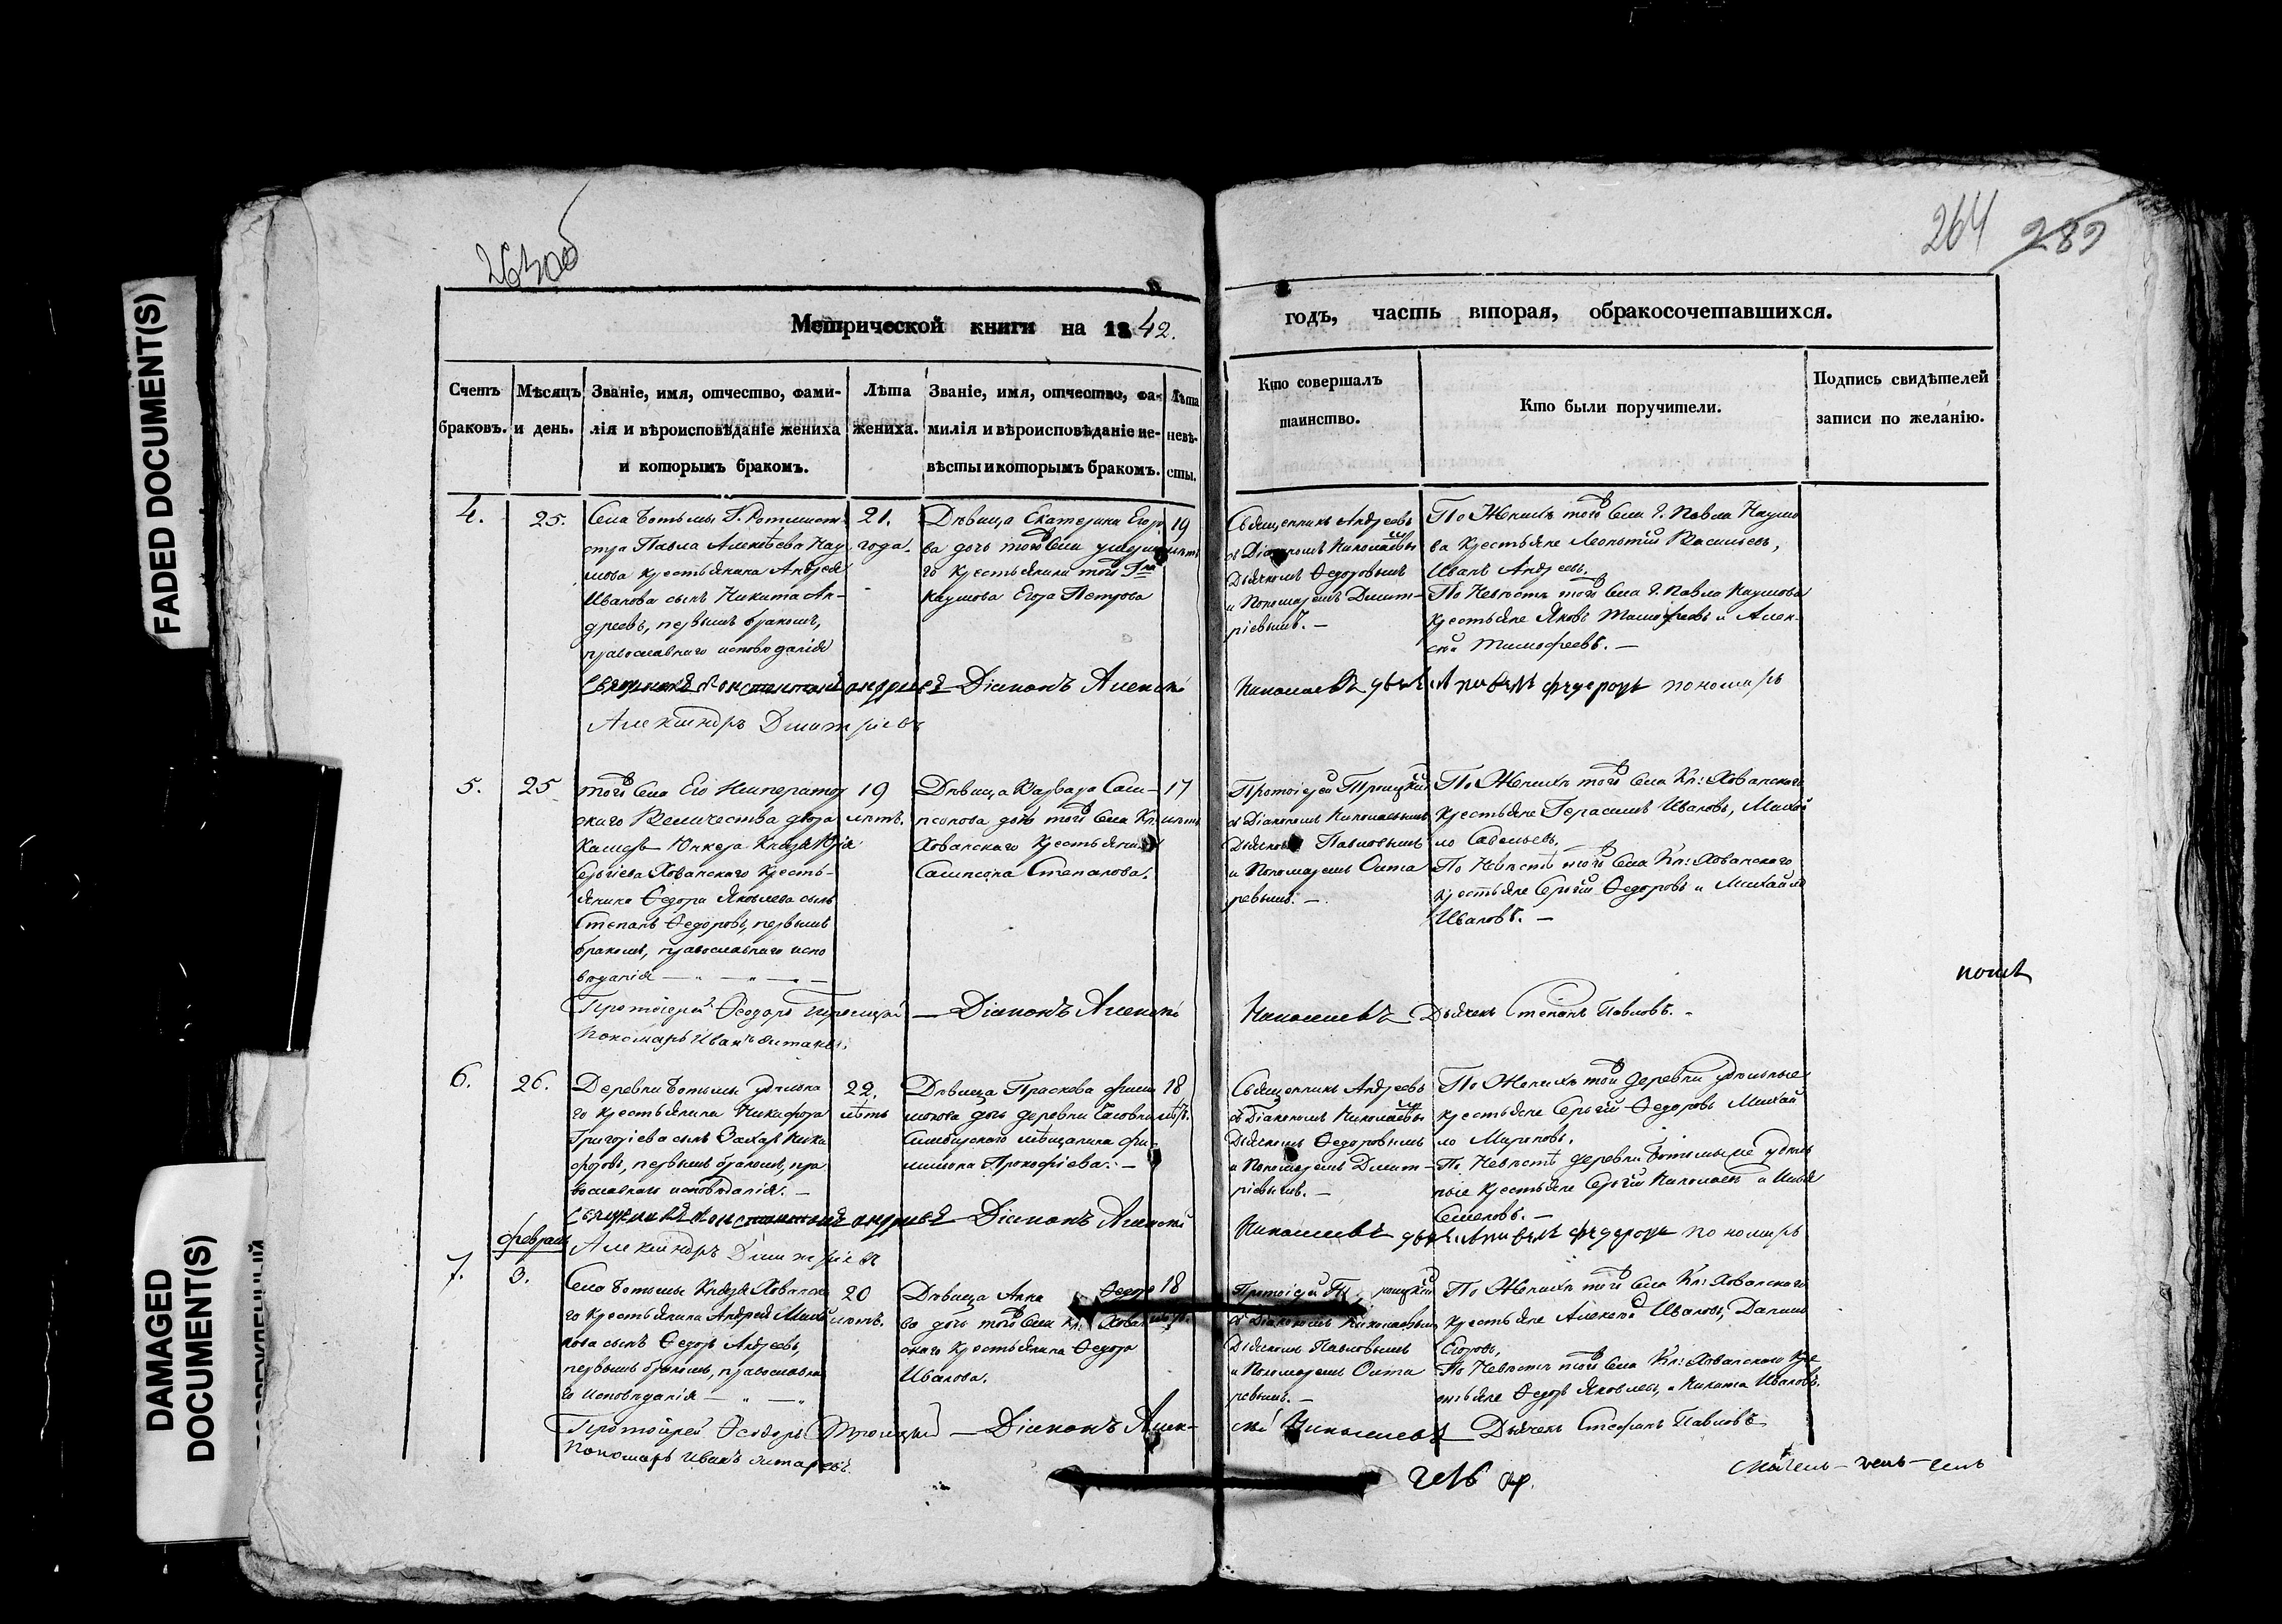 FADED DOCUMENT(S)
DAMAGED
DOCUMENT(S)
263об
264 282
Метрической книги на 1842.
годъ, часть вторая, обракосочетавшихся.
Счетъ браковъ.
Мѣсяцъ и день.
Званіе, имя, отчество, фами-
лія и вѣроисповѣданіе жениха
и которымъ бракомъ.
Лѣта
жениха.
Званіе, имя, отчество, фа-
милія и вѣроисповѣданіе не-
вѣсты и которымъ бракомъ.
Лѣта
невѣ-
сты.
Кто совершалъ
таинство.
Кто были поручители.
Подпись свидѣтелей
записи по желанію.
4.
25.
Села Ботьмы Г. Ротмист-
стра Павла Алексѣева Нау
мова крестьянина Андрея
Иванова сынъ Никита Ан-
дреевъ, первымъ бракомъ,
православнаго исповѣданія
21.
года.
Дѣвица Екатерина Егоро
ва дочь того села умерша
го крестьянина того Гна
Наумова Егора Петрова
19
лѣтъ
Священникъ Андреевъ
съ Діакономъ Николаевы
Дьячкомъ Ѳедоровымъ
и Пономаремъ Дмит-
ріевымъ. —
По Женихѣ того села Г. Павла Наумо
ва крестьяне Леонтій Васильевъ,
Иванъ Андреевъ.
По Невѣстѣ того села Г. Павла Наумова
крестьяне Яковъ Тимофеевъ и Алек-
сѣй Тимофеевъ. —
Священникъ Константинъ Андреевъ — Діаконъ Алексѣй
Николаевъ пономарь
Александръ Дмитріевъ
5.
25
того села Его Император
скаго Величества двора
Камеръ Юнкера Князя Юрія
Сергіева Хованскаго кресть-
янина Ѳедора Яковлева сынъ
Степанъ Ѳедоровъ, первымъ
бракомъ, православнаго испо
веданія
19
лѣтъ.
Дѣвица Варвара Сам-
псонова дочь того села Кн.
Хованскаго крестьянина
Сампсона Степанова.
17
лѣтъ
Протоіерей Троицкій
съ Діакономъ Николаевымъ
Дьячкомъ Павловымъ
и Пономаремъ Охота
ревымъ. —
По Женихѣ того села Кн: Хованскаго
крестьяне Герасимъ Ивановъ, Михай
ло Савельевъ.
По Невѣстѣ того села Кн: Хованскаго
крестьяне Сергій Ѳедоровъ и Михайло
Ивановъ. —
Протоіерей Ѳеодоръ Троицкій — Діаконъ Алексѣй
Николаевъ Дьячекъ Степанъ Павловъ. —
6.
26.
Деревни Ботьмы удѣльна
го крестьянина Никифора
Григоріева сынъ Захаръ Ники
форовъ, первымъ бракомъ, пра
вославнаго исповѣданія. —
22.
лѣтъ
Дѣвица Прасковья Фили
монова дочь деревни
Симбирскаго мѣщанина Фи-
лимона Прокофіева. —
18
лѣтъ.
Священникъ Андреевъ
съ Діакономъ Николаевы
Дьячкомъ Ѳедоровымъ
и Пономаремъ Дмит-
ріевымъ. —
По Женихѣ той деревни удѣльные
крестьяне Сергій Ѳедоровъ Михай
ло Мироновъ.
По Невѣстѣ деревни Ботьмы удѣль
ные крестьяне Сергій Николаевъ и Илья
Семеновъ. —
Священникъ Константинъ Андреевъ — Діаконъ Алексѣй
Николаевъ пономарь
Александръ Дмитріевъ
Февраль
7.
3.
Села Ботьмы Князя Хованска
го крестьянина Андрея Михай
лова сынъ Ѳедоръ Андреевъ,
первымъ бракомъ, православна
го исповѣданія
20
лѣтъ.
Дѣвица Анна Ѳедоро
ва дочь того села Кн. Хован
скаго крестьянина Ѳедора
Иванова.
18
лѣтъ.
Протоіерей Троицкій
съ Діакономъ Николаевым
Дьячкомъ Павловымъ
и Пономаремъ Охота
ревымъ. —
По Женихѣ того села Кн: Хованскаго
крестьяне Алексѣй Ивановъ, Данило
Егоровъ,
По Невѣстѣ того села Кн: Хованскаго кре
стьяне Ѳедоръ Яковлевъ, и Никита Ивановъ.
Протоіерей Ѳеодоръ Троицкій — Діаконъ Алек-
сѣй Николаевъ Дьячекъ Стефанъ Павловъ